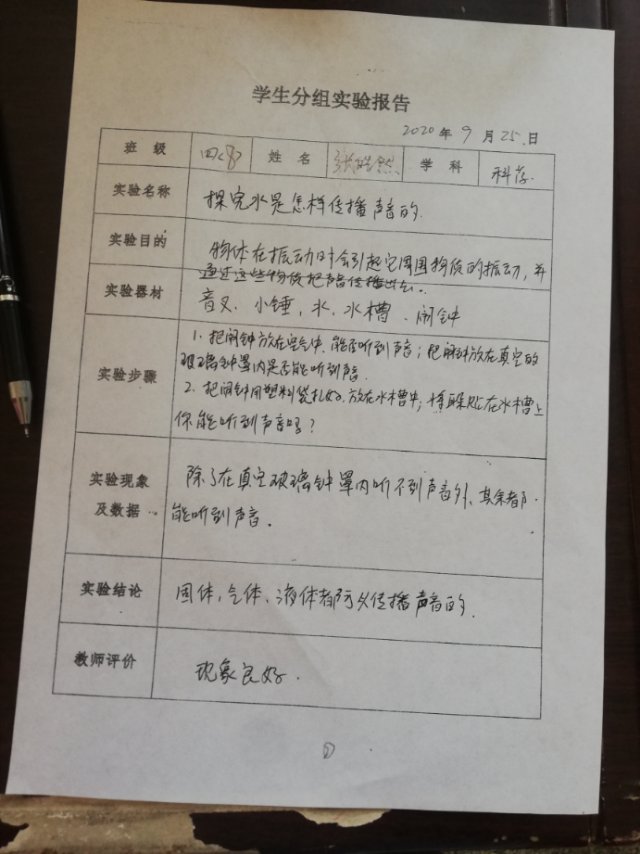 学生分组实验报告
2020年9月25日
班级 四 姓名 张皓然 学科 科学
实验名称 探究水是怎样传播声音的.
实验目的 物体在振动时会引起它周围物质的振动,并
通过这些物质把声音传播出去.
实验器材 音叉、小锤,水、水槽、闹钟
1. 把闹钟放在空气中,能否听到声音;把闹钟放在真空的
玻璃钟罩内是否能听到声音.
实验步骤
2. 把闹钟用塑料袋扎好,放在水槽中;将耳朵贴在水槽上
你能听到声音吗?
实验现象 除了在真空玻璃钟罩内听不到声音外、其余都
及数据 能听到声音。
实验结论 固体,气体、液体都可以传播声音的.
教师评价 现象良好.